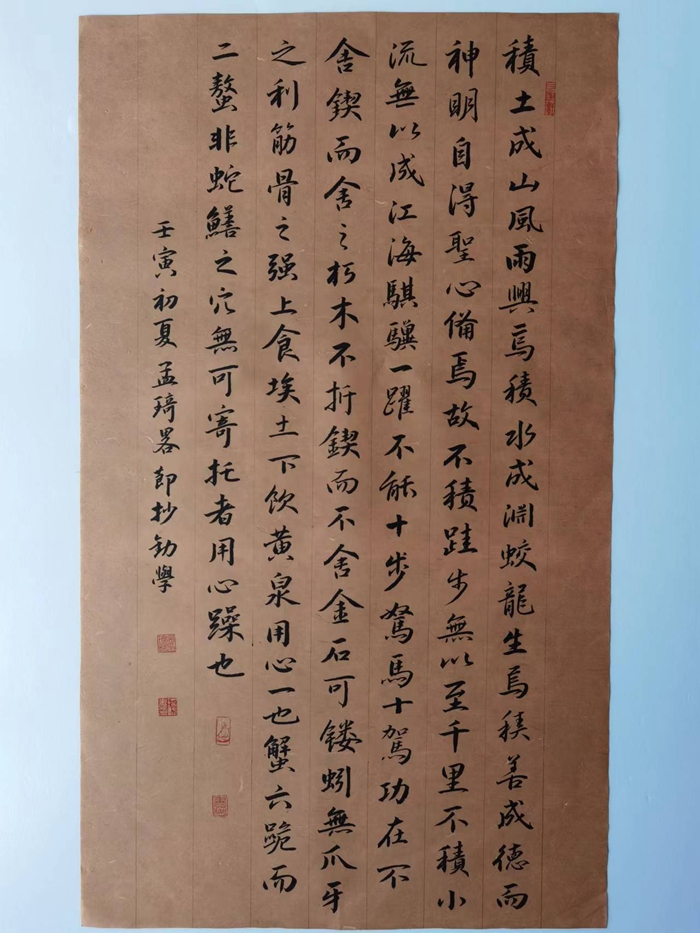 積土成山風雨興焉積水成渊蛟龍生焉積善成德而
神明自得聖心備焉故不積跬步無以至千里不積小
流無以成江海騏驥一躍不能十步駑馬十駕功在不
舍鍥而舍之朽木不折鍥而不舍金石可镂蚓無爪牙
之利筋骨之强上食埃土下飲黄泉用心一也蟹六跪而
二螯非蛇鱔之穴無可寄托者用心躁也
壬寅初夏孟琦畧節抄勧學